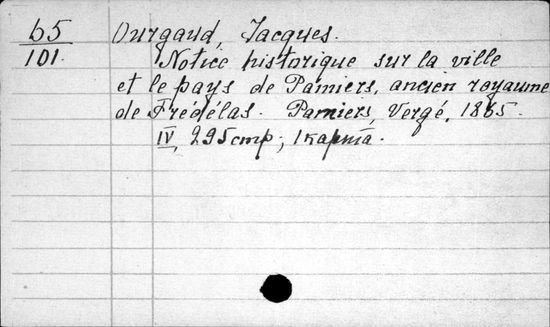 65
101.
Ourgaud, Jacques.
Notice historique sur la ville
et le pays de Pamiers, ancien royaume
de Frédélas. Pamiers, Vergé, 1865.
IV, 295 стр; 1 карта.